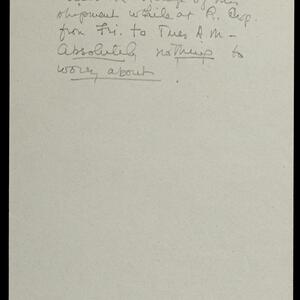 shipment while at R.
from Fri. to Tues A.M-
Absolutely nothing to
worry about.